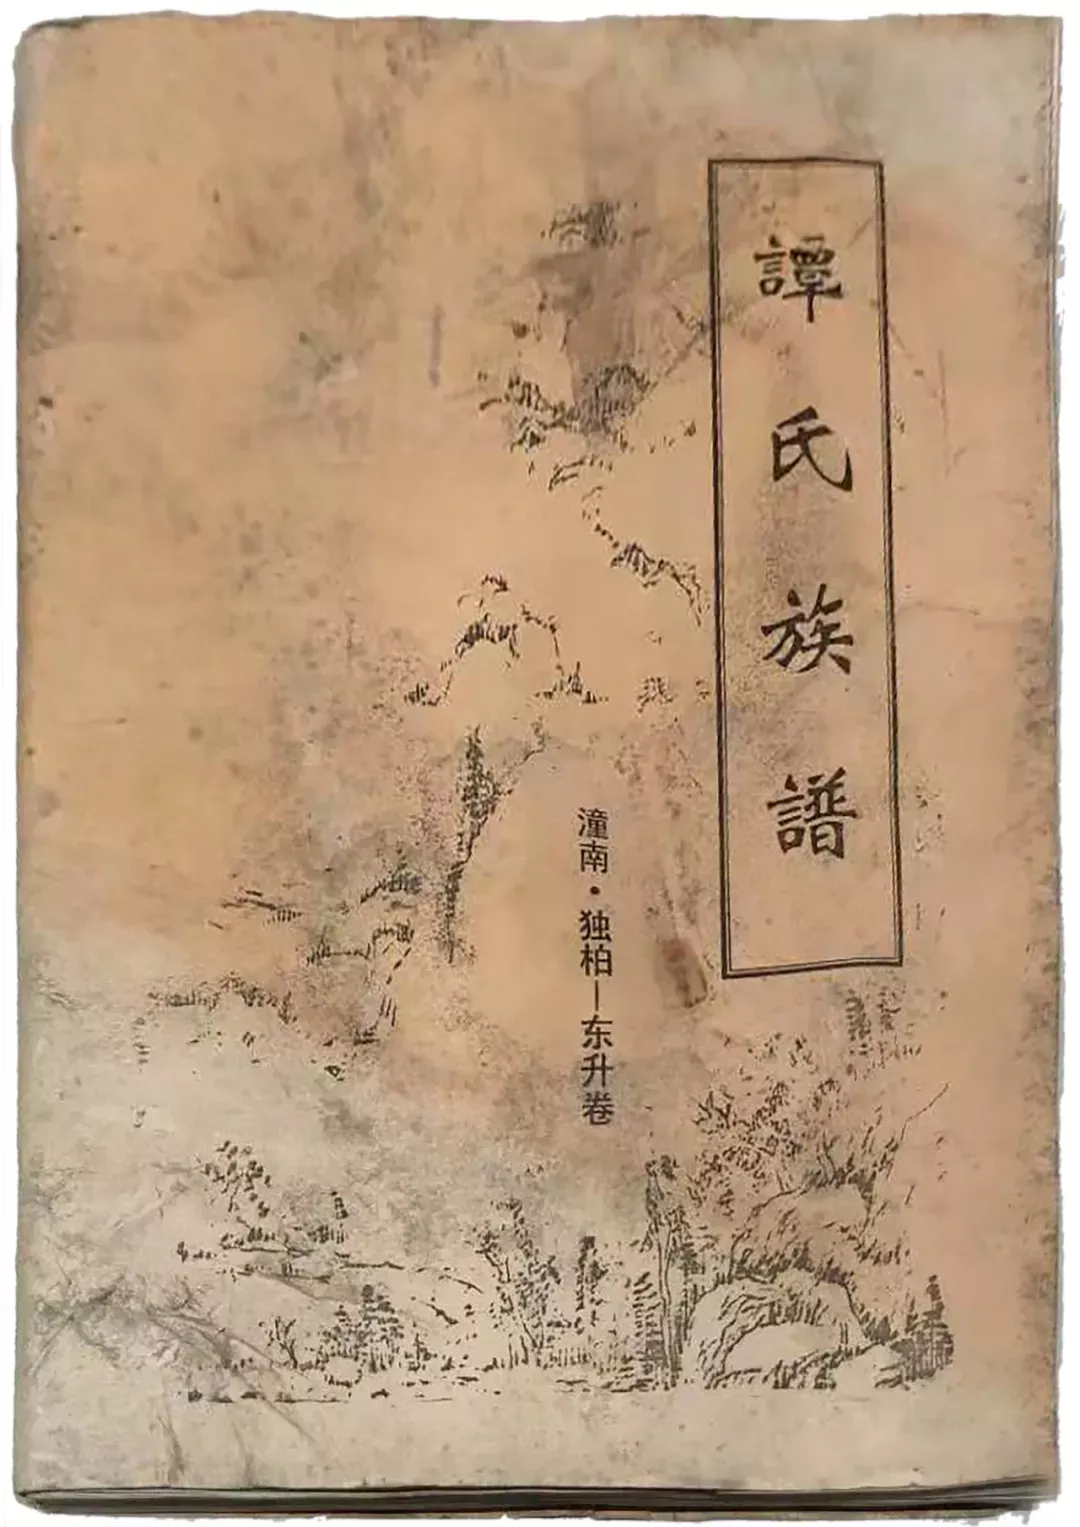 譚氏族譜
潼南·独柏—东升卷